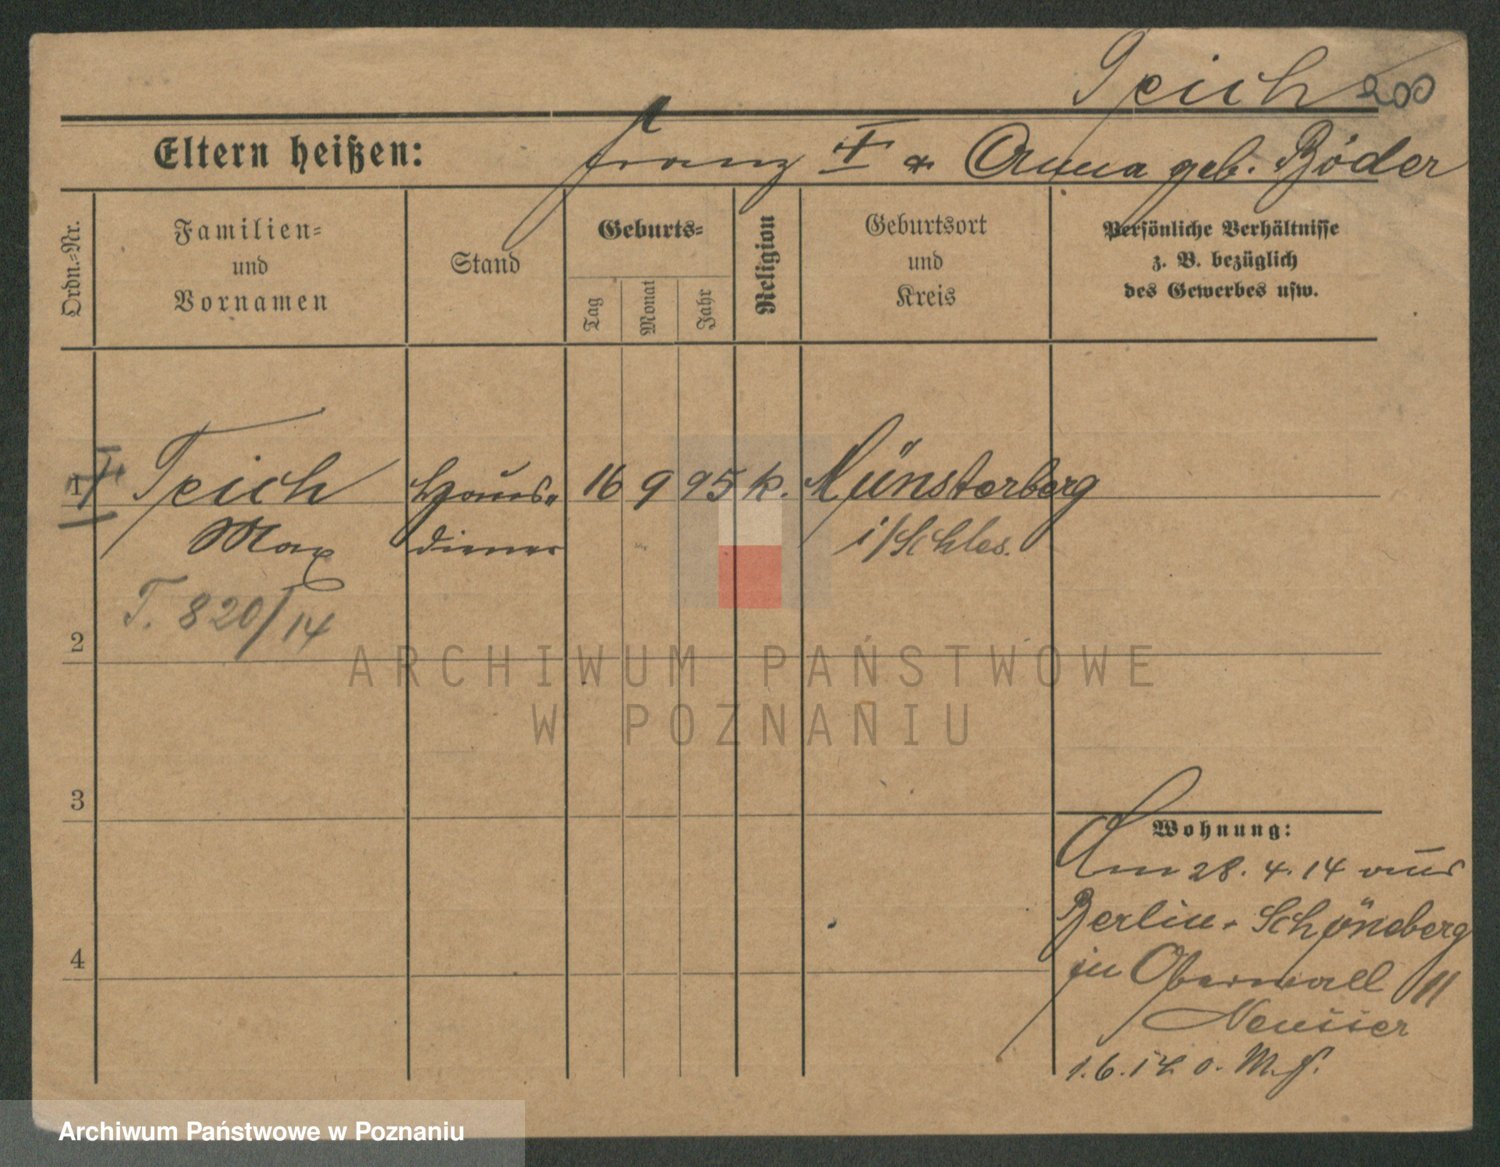 Teich 200
Eltern heißen: Franz † u Anna geb. Böder
Ordn.-Nr.
Familien- und Vornamen
Stand
Geburts-
Tag Monat Jahr
Religion
Geburtsort und Kreis
Persönliche Verhältnisse
z. B. bezüglich
des Gewerbes usw.
1 Teich Haus- 16 9 95 k. Münsterberg
Max diener i/Schles.
T. 820/14
2
ARCHIWUM PAŃSTWOWE
W POZNANIU
3
Wohnung:
Am 28. 4. 14 aus
Berlin-Schöneberg
in Oberwall 11
4
1.6.14 o. M. f.
Archiwum Państwowe w Poznaniu